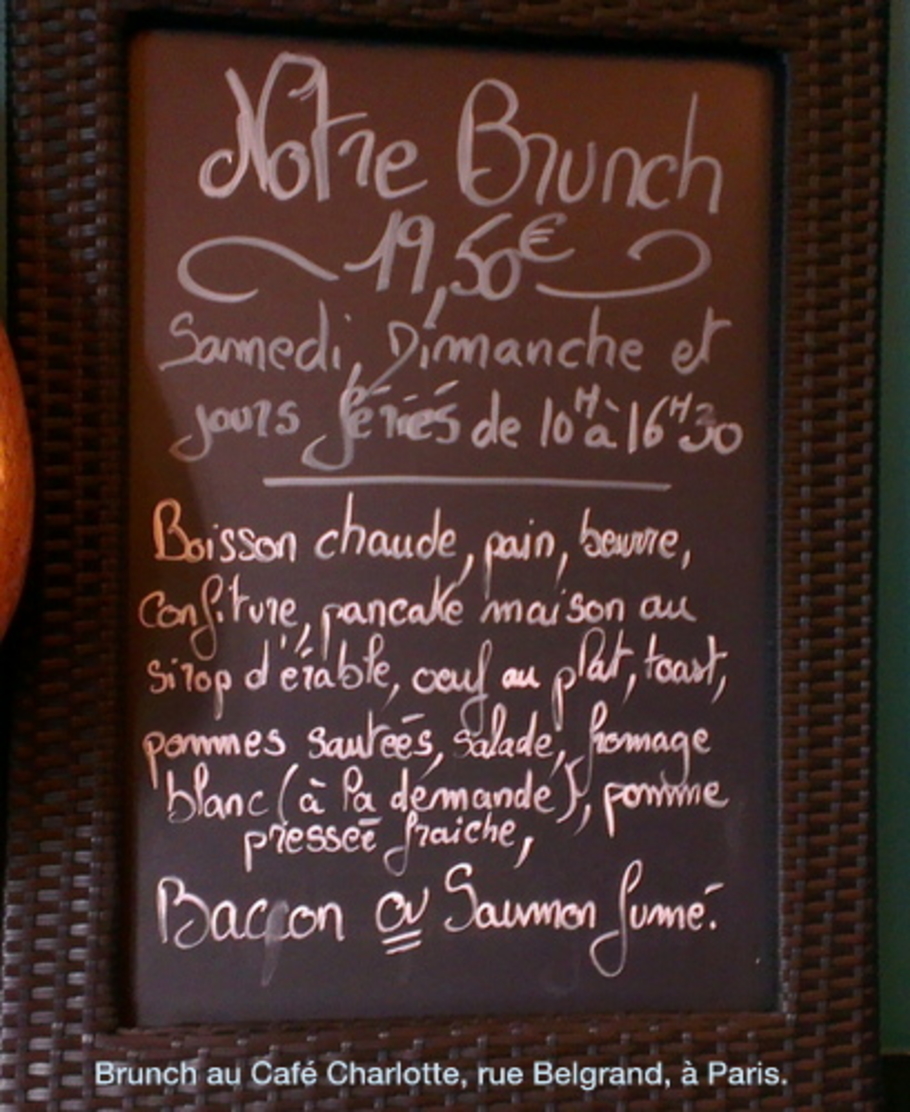 Notre Brunch
19,50€
Samedi, Dimanche et
jours fériés de 10H à 16H30
Boisson chaude, pain, beurre,
confiture, pancake maison au
sirop d'érable, oeuf au plat, toast,
pommes sautées, salade, fromage
blanc (à la demande), pomme
pressée fraiche,
Bacon ou Saumon fumé.
Brunch au Café Charlotte, rue Belgrand, à Paris.